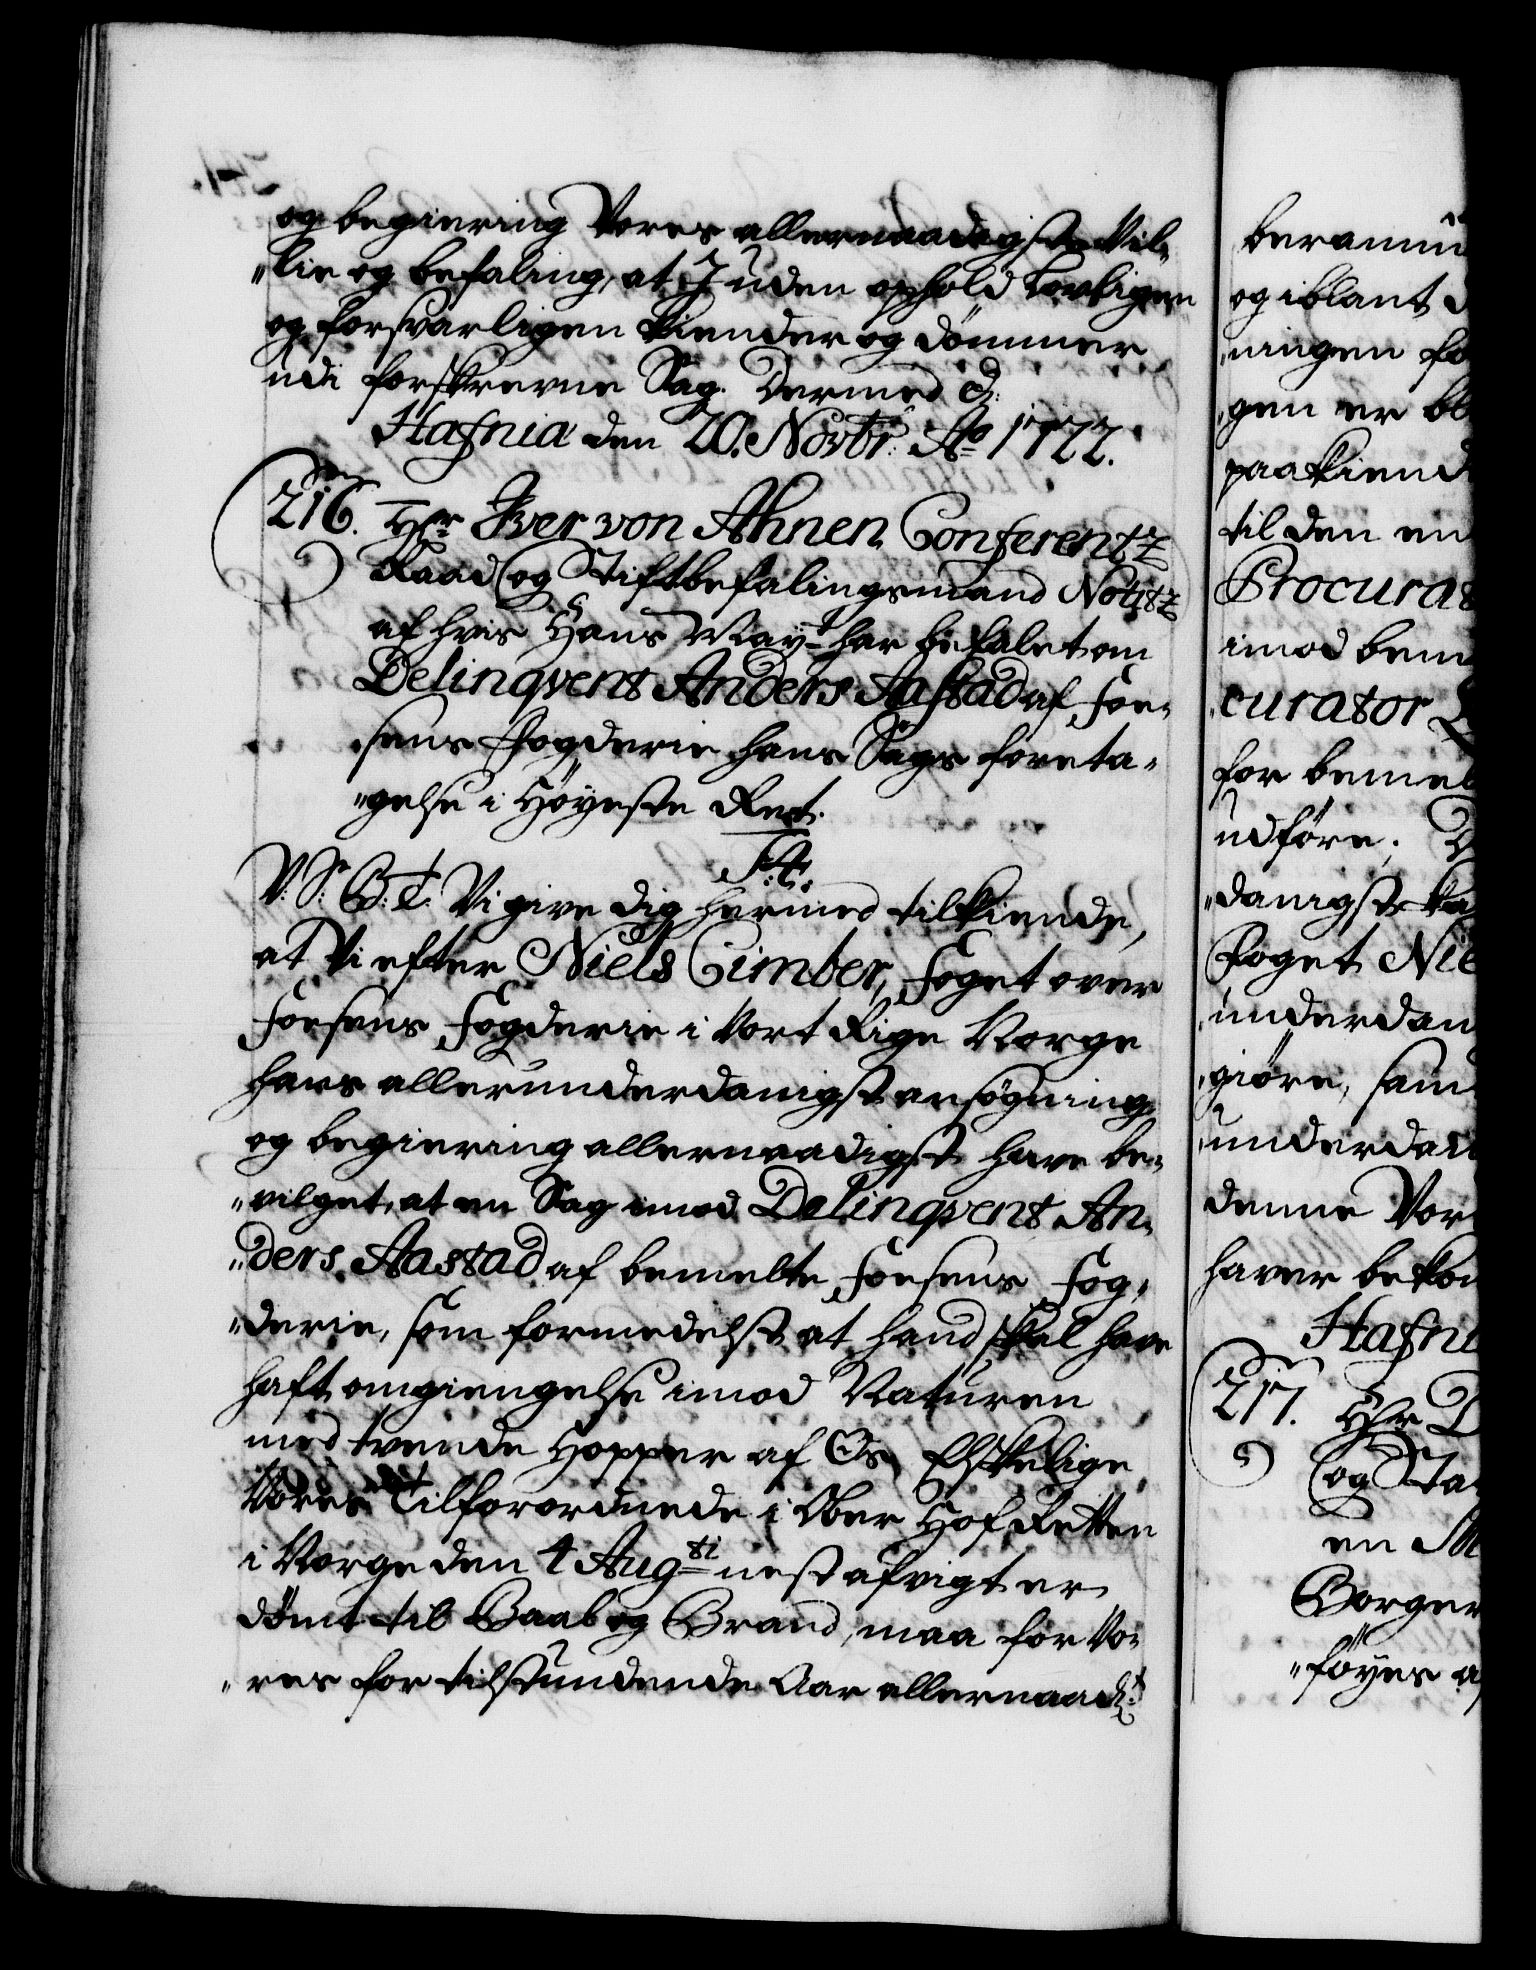 og begiering Vores allernaadigste Vil-
"lie og befaling, at I uden ophold lovligen
og forsvarligen kiender og dömmer
udi forskrevne Sag. Dermed &:
Hafnia den 20. Novbr: Ao 1722.
216. Hr Iver von Ahnen Conferentz
Raad og Stiftbefalingsmand Notitz
af hvis Hans Mayt har befalet om
Delinqvent Anders Aastad af Foe-
sens Fogderie hans Sags foreta-
"gelse i Höyeste Ret.
F: 4.
V: S: G: T. Vi give dig hermed tilkiende,
at Vi efter Niels Cimber, Foget over
Foesens Fogderie i Vort Rige Norge
hans allerunderdanigst ansögning
og begiering allernaadigst have be-
"vilget, at en Sag imod Delinqvent An-
"ders Aastad af bemelte Foesens Fog-
"derie, som formedelst at hand skal have
haft omgiengelse imod Naturen
med tvende Hopper af Os Elskelige
Vores Tilforordnede i Ober Hof Retten
i Norge den 4 Augti nest afvigt er
dömt til Baal og Brand, maa for Vo-
"res for tilstundende Aar allernaadt
beramm
og iblant d
"ningen fo
"gen er bl
paakiend
til den en
Procurat
imod bem
"curator
for bemel
udföre;
"danigst
Foget Nie
"underdan
"giöre, sam
"underdan
denne Vor
haver bekom
Hafni
217. Hr
og Sta
en
Borger
"föyes